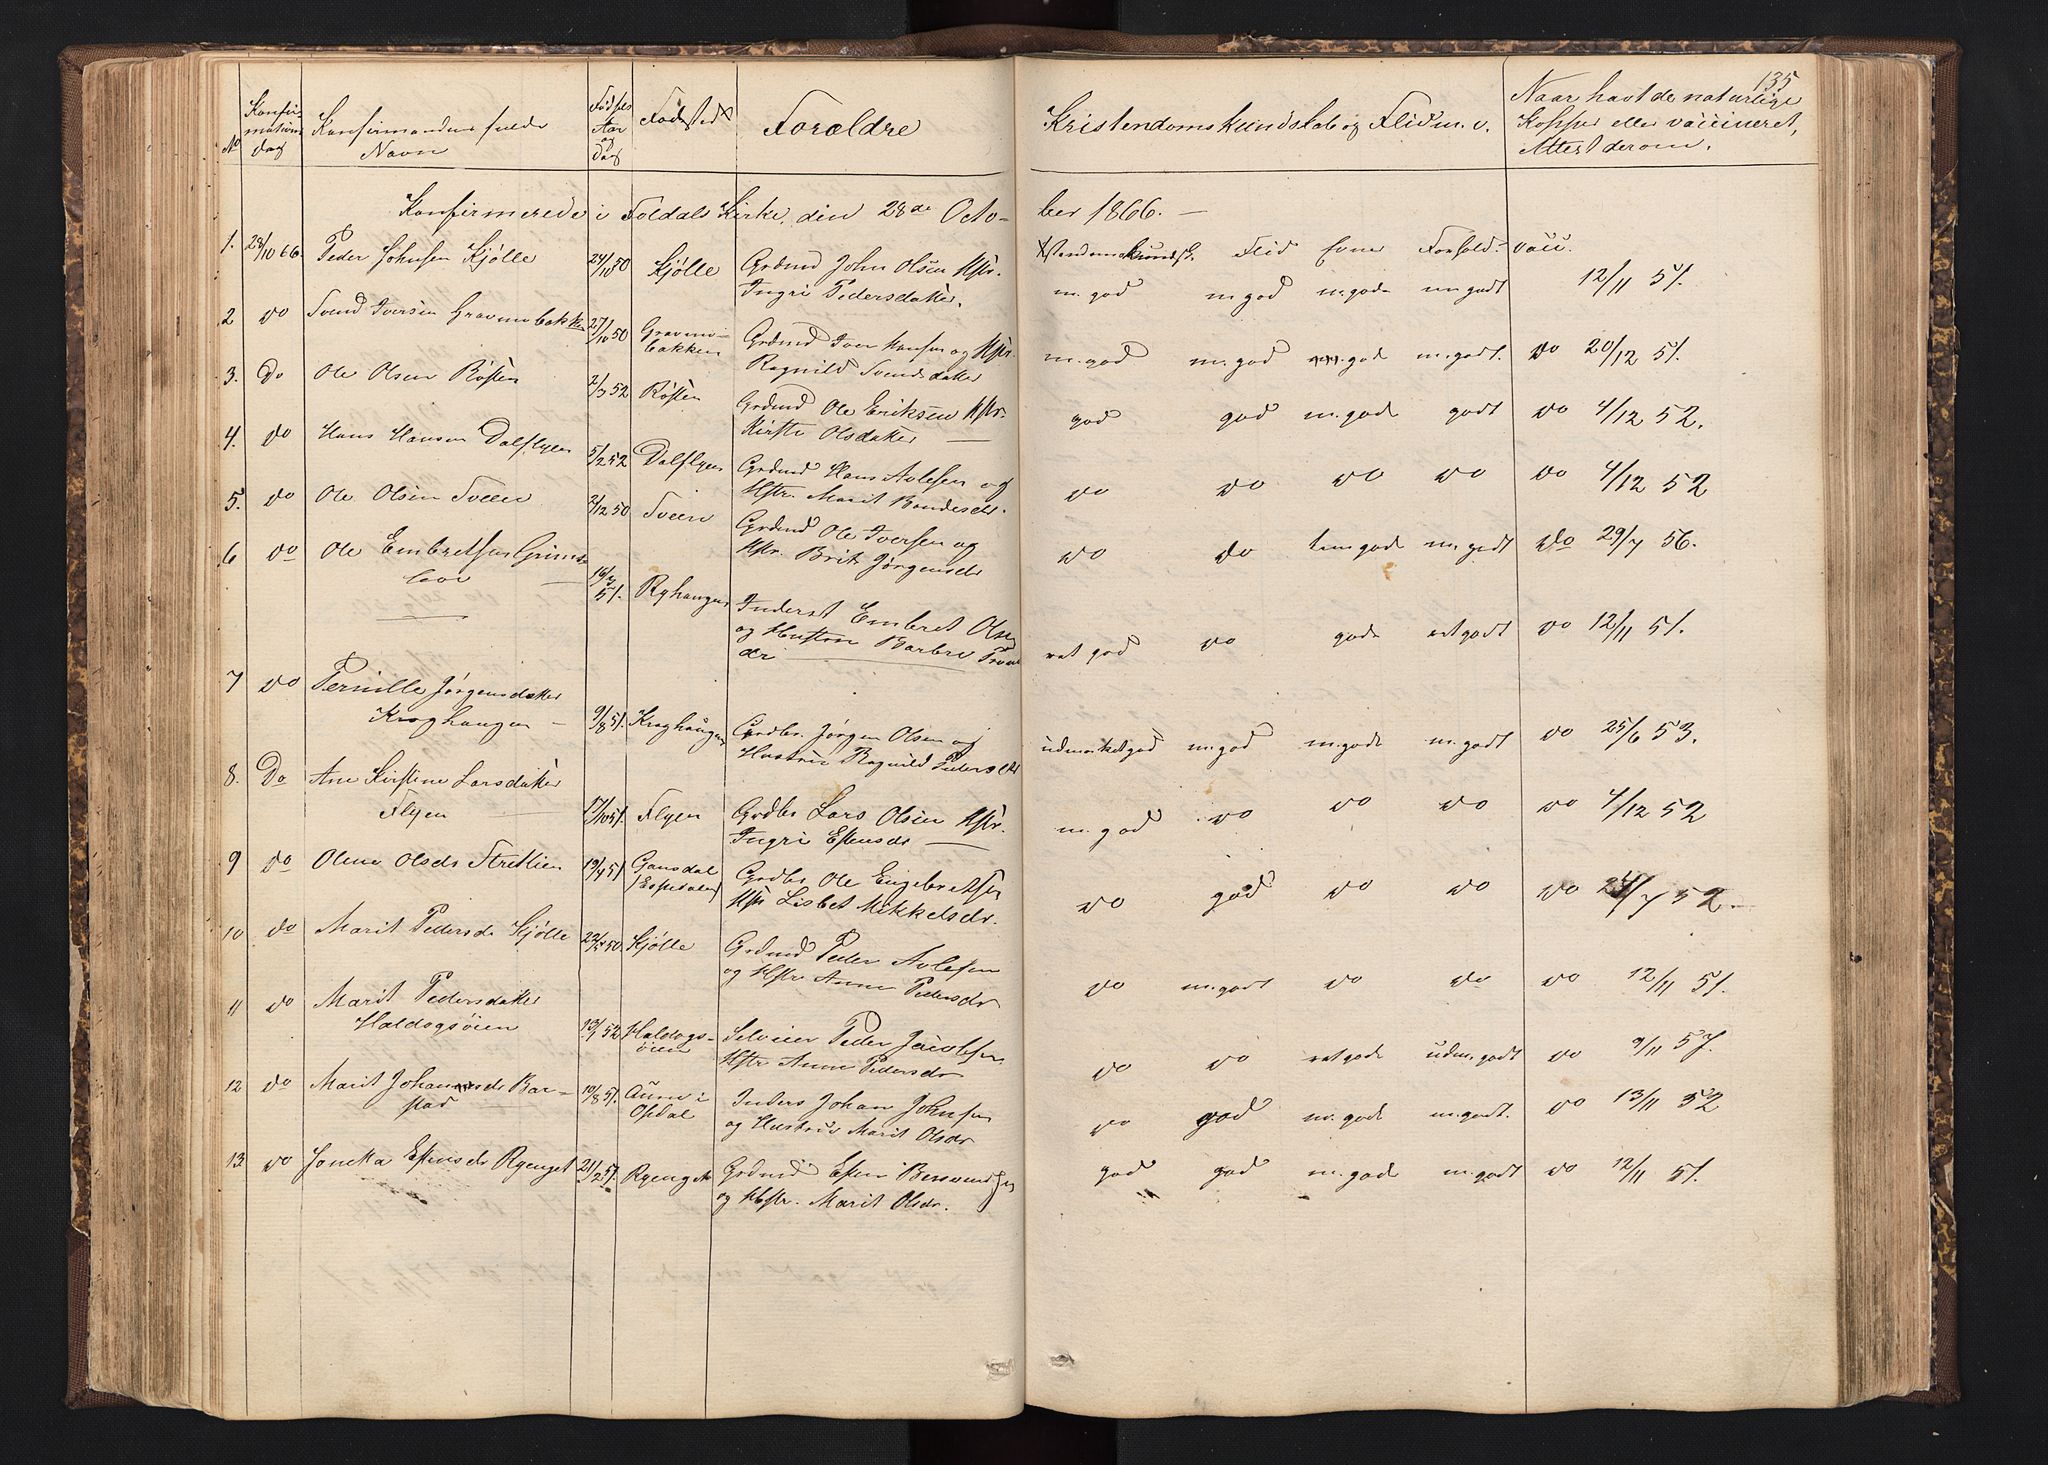 135
No
Konfir-
mations
dag
Konfirmandens fulde
Navn
Fødsels
Aar
og
Dag
Fødested
Forældre
Kristendomskundskab og Flid m. v.
Naar havt de naturlige
Kopper eller vaccineret,
Attest derom.
Konfirmerede i Foldals Kirke, den 28de Octo-
ber 1866. —
Xstendomskundsk. Flid Evner Forhold vacc.
1. 28/10 66. Peder Johnsen Kjølle 24/10 50 Kjølle Grdmd John Olsen Hstr.
Ingri Pedersdatter. m. god m. god m. gode m. godt 12/11 51.
2 do Svend Iversen Gravmobakken 27/10 50 Gravmo-
bakken Grdmd Iver Hansen og Hstr.
Ragnild Svendsdatter m. god m. god m. gode m. godt. do 20/12 51.
3. Do Ole Olsen Røsten 2/3 52 Røsten Grdmd Ole Eriksen Hstr.
Kirsti Olsdatter — god god m. gode godt do 4/12 52.
4. do Hans Hansen Dalflyen 5/2 52 Dalflyen Grdmd Hans Avlesen og
Hstr. Marit Bendesdr. do do do do do 4/12 52
5. do Ole Olsen Sveen 2/12 50 Sveen Grdmd Ole Iversen og
Hstr. Brit Jørgensdr do do tem. gode m. godt do 29/7 56.
6 do Ole Embretsen Grims-
boe 16/3 51. Ryhaugen Inderst Embret Olsen
og Hustru Barbro Trond
dr. — ret god do gode ret godt do 12/11 51.
7 do Pernille Jørgensdatter
Kroghaugen — 9/8 51. Kroghaugen Grdbr. Jørgen Olsen og
Hustru Ragnild Pedersdtr udmerket god m. god m. gode m. godt do 25/6 53.
8. Do Ane Kirstine Larsdatter
Flyen 17/10 51. Flyen Grdbr Lars Olsen Hstr.
Ingri Estensdr — m. god do do do do 4/12 52
9 do Oline Olsdr Strætlien 19/4 51 Gansdal
(Espedalen) Grdbr Ole Engebretsen
Hstr Lisbet Mikkelsdr. do god do do do 24/7 52.
10 do Marit Pedersdr Kjølle 22/5 50. Kjølle Grdmd Peder Avlesen
og Hstr Anne Pedersdr do m. godt do do do 12/11 51.
11 do Marit Pedersdatter
Haldogsøien 13/1 52 Haldogs-
øien Selveier Peder Jacobsen
Hstr Anne Pedersdr do do ret gode udm. godt do 9/11 57.
12 do Marit Johannesdr Bar-
stad 10/8 51. Aune i
Opdal Inders Johan Johnsen
og Hustru Marit Olsdr do god m. gode m. godt. do 13/11 52
13. do Jonetta Estensdr Ryenget 21/2 51. Ryenget Grdmd Esten
og Hstr. Marit Olsdr. god god m. gode m. godt do 12/11 51.